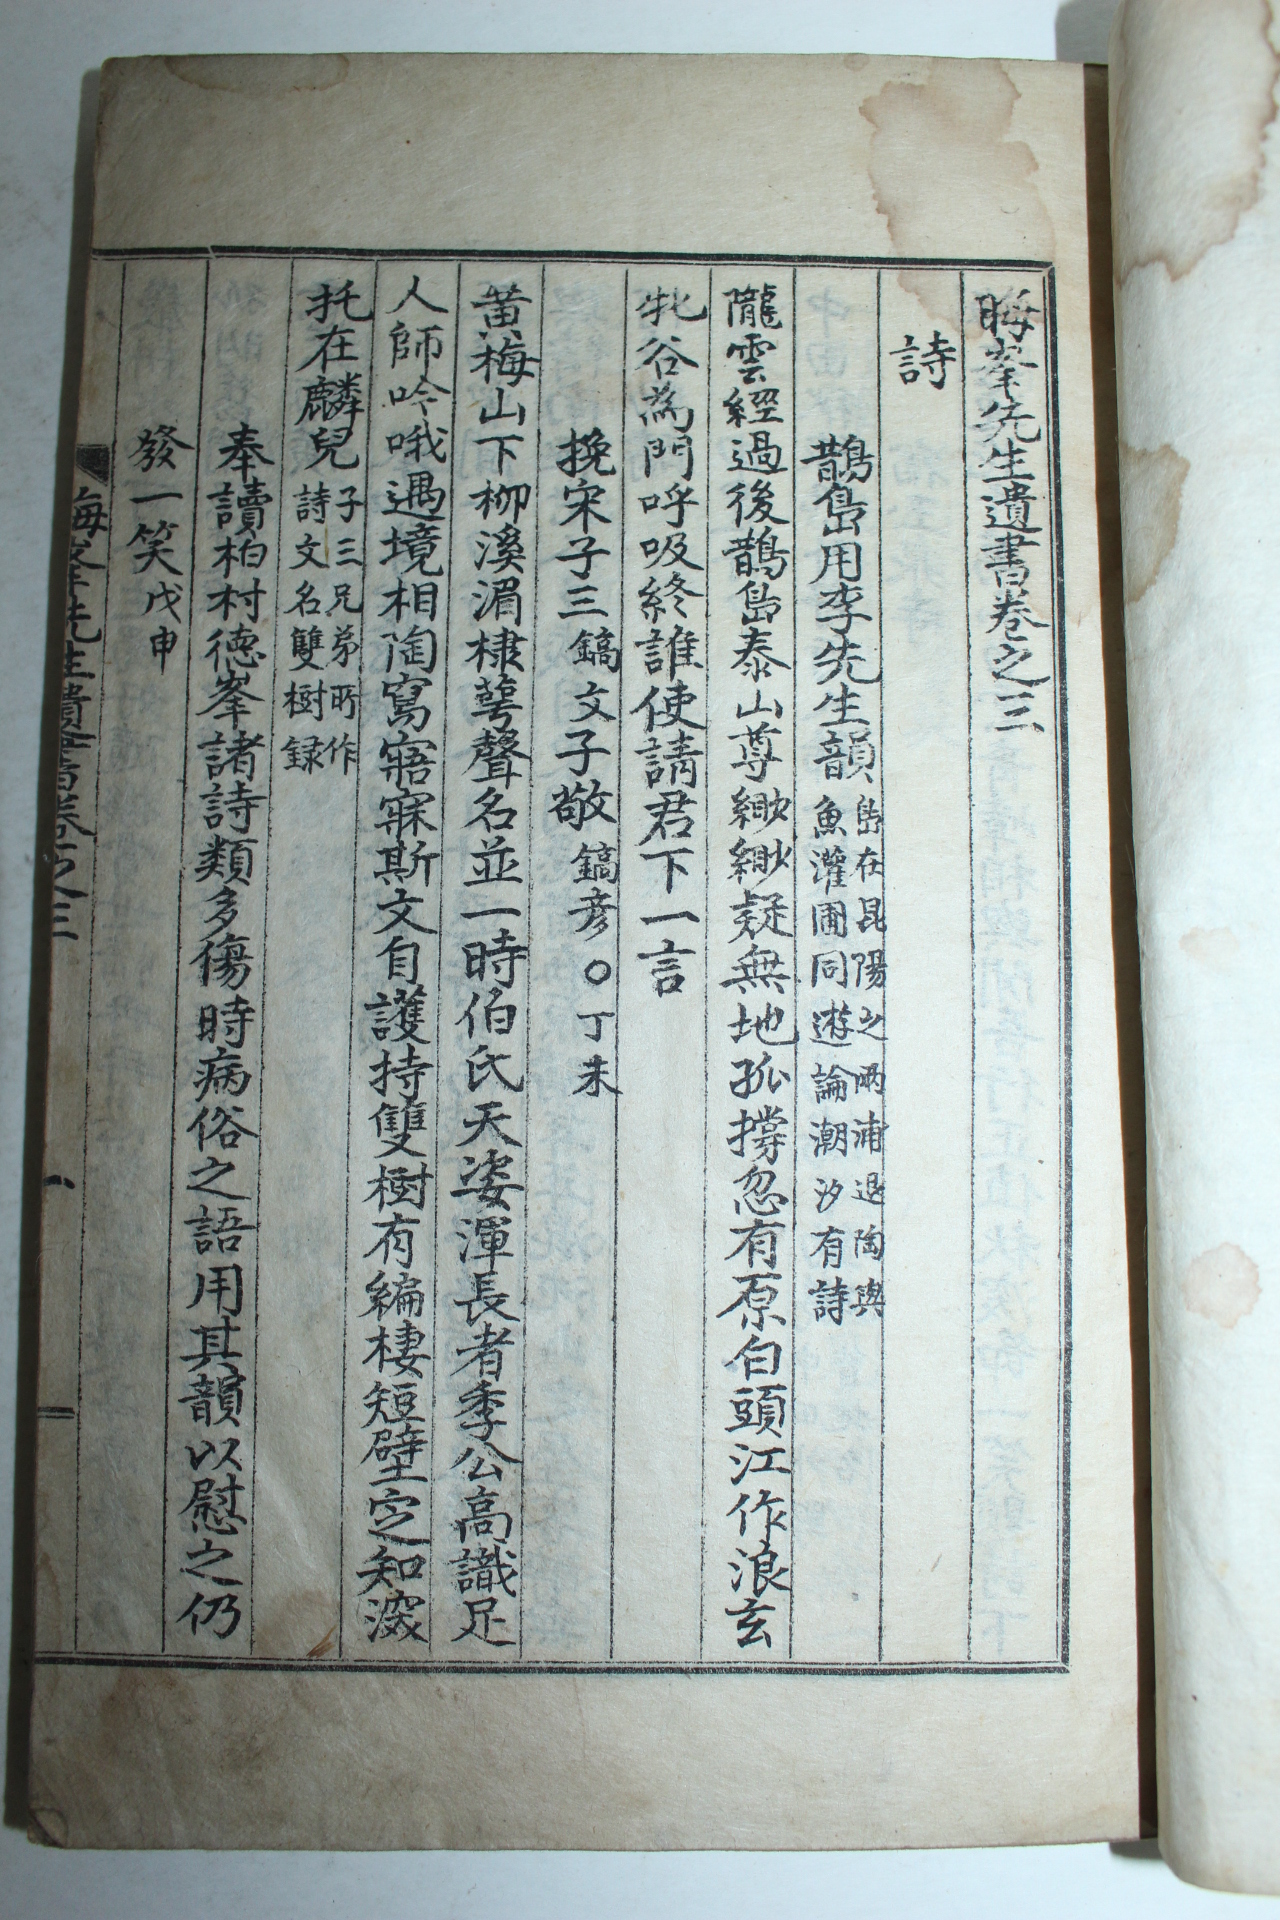 晦峯先生遺書卷之三
詩
鵲島用李先生韻 島在昆陽之兩浦退陶與魚灌圃同遊論潮汐有詩
隴雲經過後鵲島泰山尊緲緲疑無地孤撐忽有原白頭江作浪玄
牝谷為門呼吸終誰使請君下一言
挽宋子三 鎬文 子敬 鎬彦 ○丁未
黃梅山下柳溪湄棣萼聲名並一時伯氏天姿渾長者季公高識足
人師吟哦遇境相陶寫寤寐斯文自護持雙樹有編棲短壁定知深
托在麟兒 子三兄弟所作詩文名雙樹錄
奉讀柏村德峯諸詩類多傷時病俗之語用其韻以慰之仍
發一笑 戊申
晦峯先生遺書卷之三 一